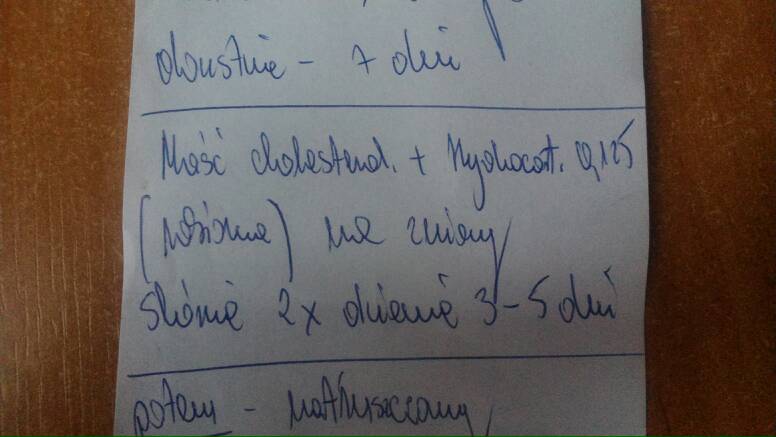 doustnie - 7 dni
Maść cholesterol. + Hydrocort. 0,125
(robiona) na zmiany
skórne 2x dziennie 3-5 dni
potem - natłuszczamy